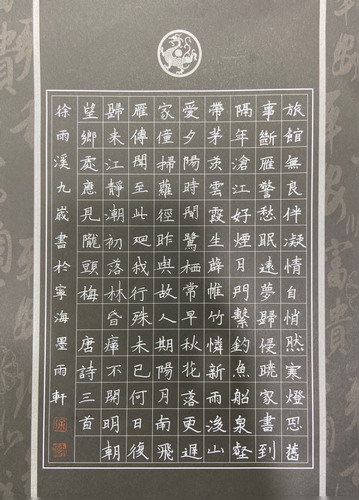 旅館無良伴凝情自悄然寒燈思舊
事斷雁警愁眠遠夢歸侵曉家書到
隔年滄江好煙月門繫釣魚船泉壑
帶茅茨雲霞生薜帷竹憐新雨後山
愛夕陽時閒鷺栖常早秋花落更遲
家僮掃蘿徑昨與故人期陽月南飛
雁傳聞至此迴我行殊未已何日復
歸來江靜潮初落林昏瘴不開明朝
望鄉處應見隴頭梅 唐詩三首
徐雨溪九歲書於寧海墨雨軒